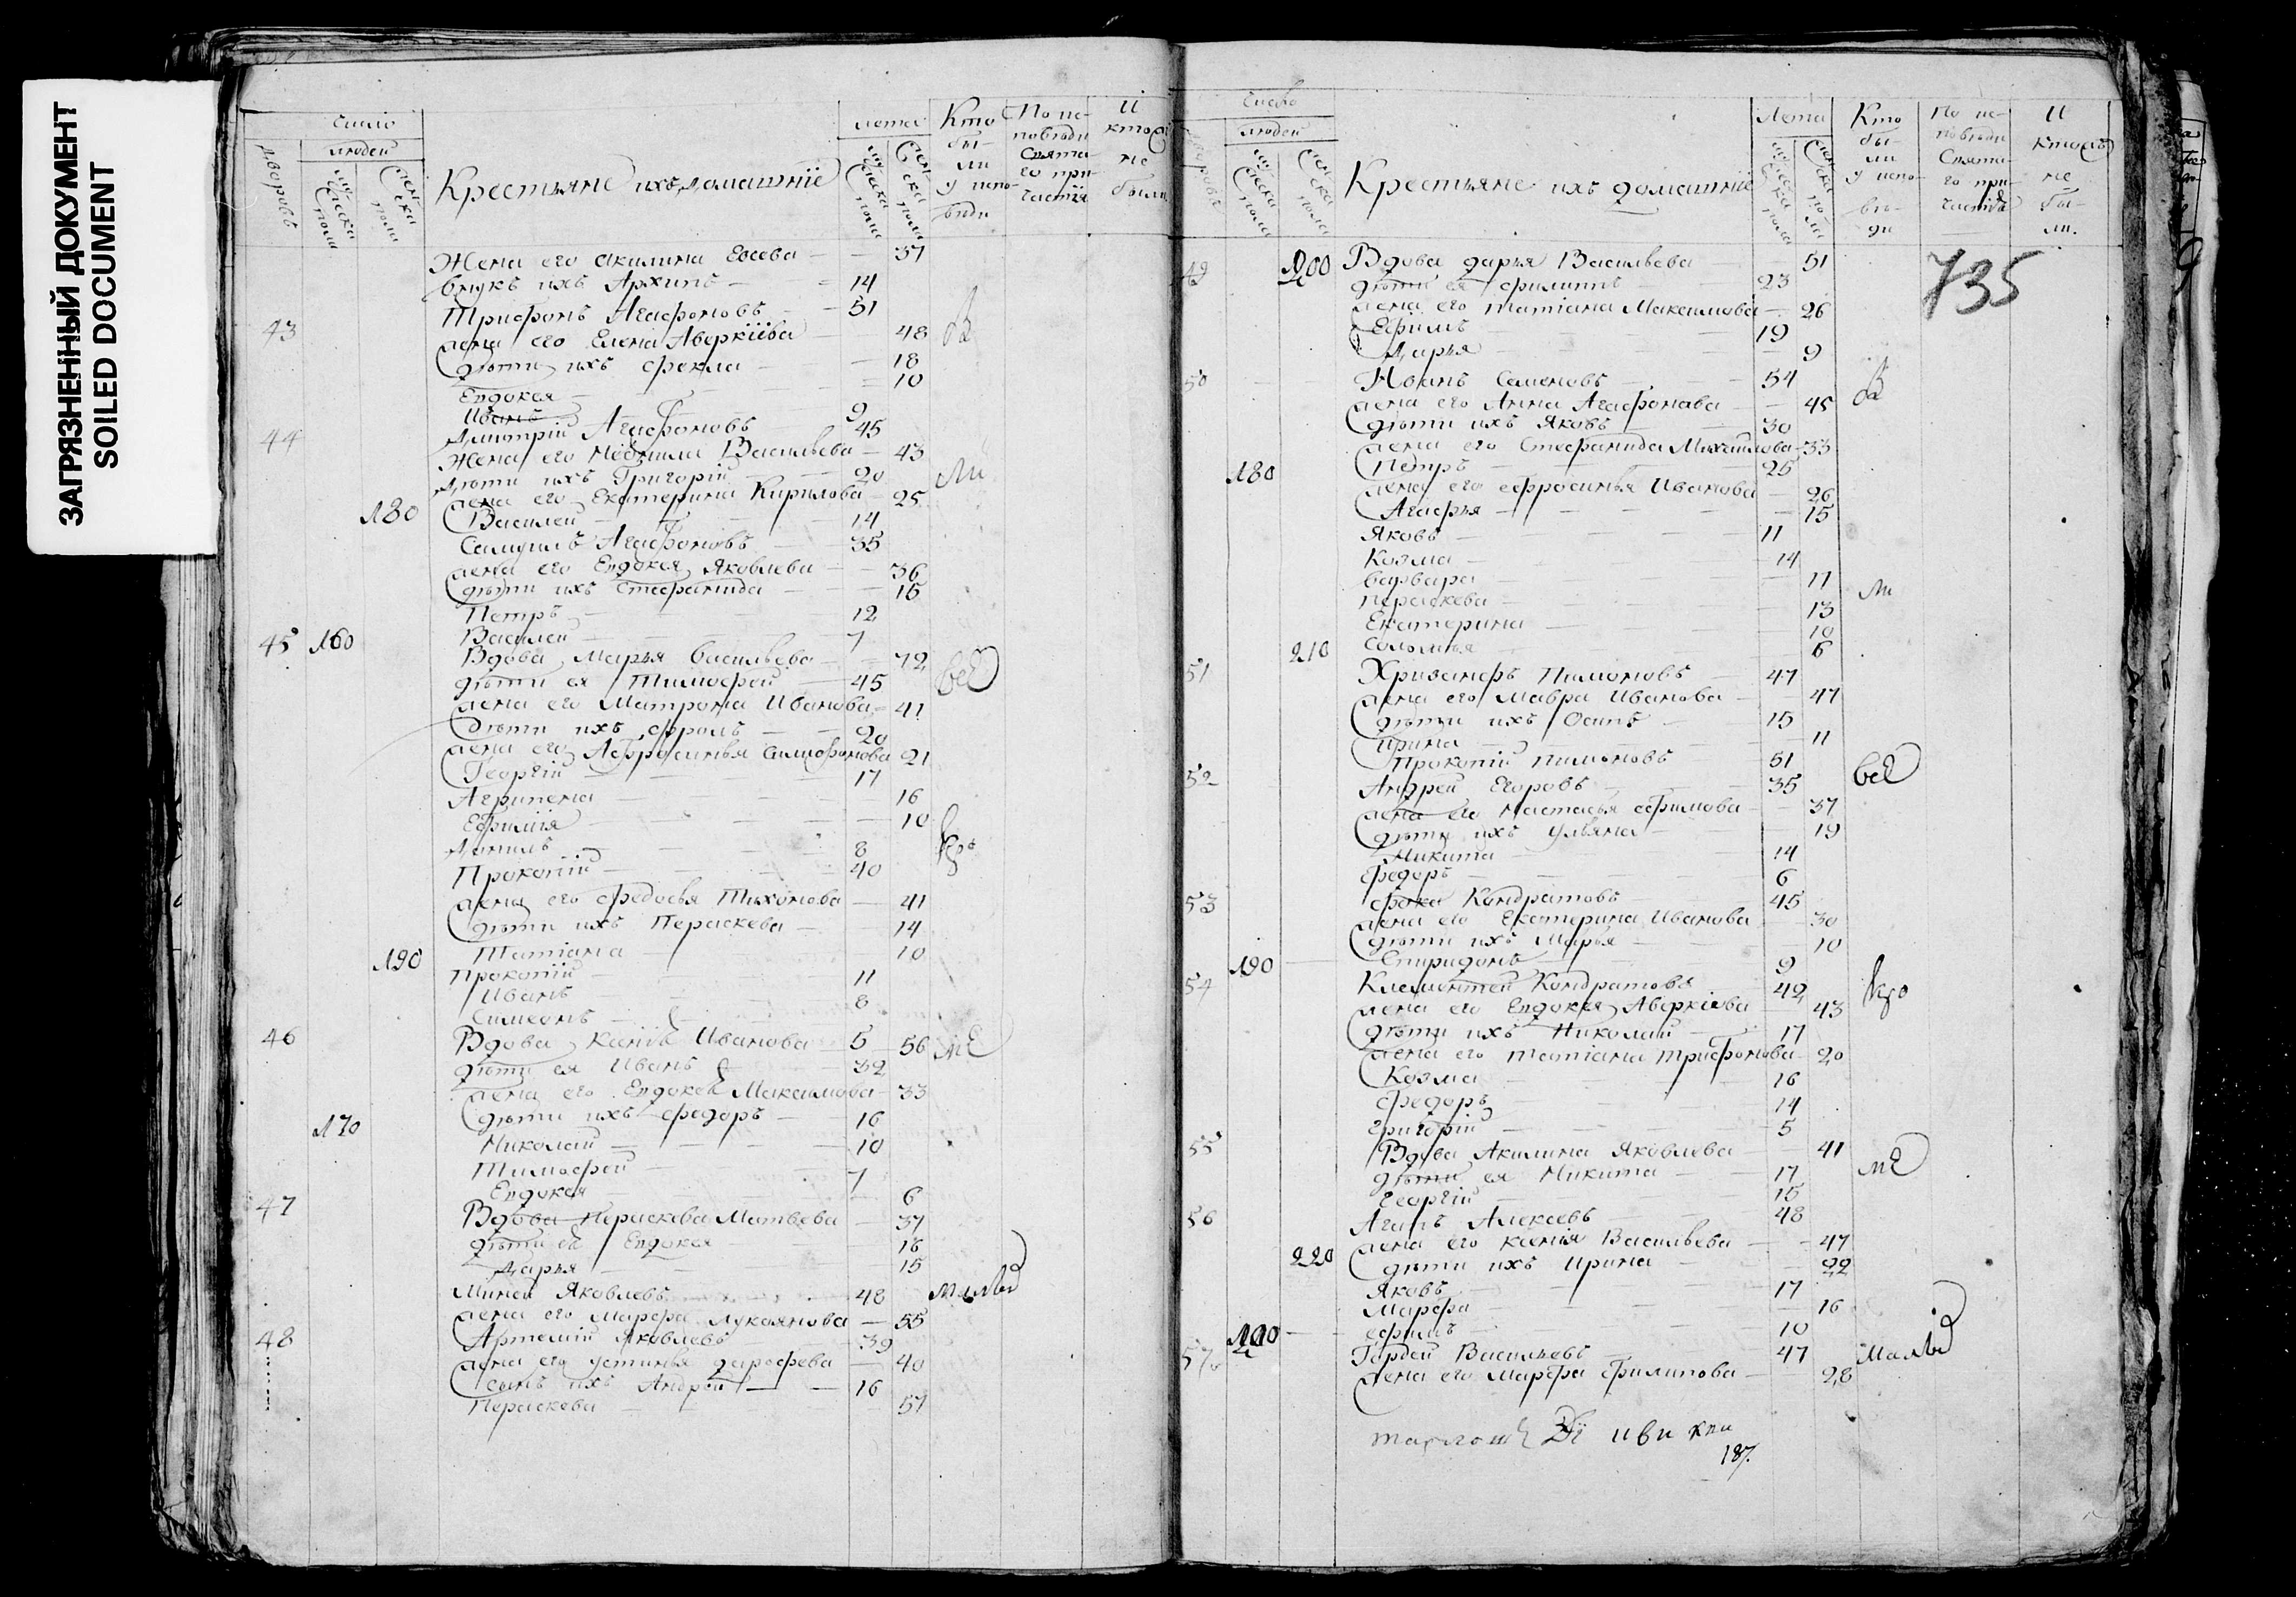 ЗАГРЯЗНЕННЫЙ ДОКУМЕНТ
SOILED DOCUMENT
Число лета Кто По ис- И
дворовъ людей бы- поведи кто съ
мужеска полу женска полу Крестьяне ихъ домашнїе мужеска полу женска полу ли Свята- не
у испо- го при- были
веди частїя
Жена его Акилина Евсева 37
внукъ ихъ Архипъ 14
Трифонъ Агафоновъ 51
43 жена его Елена Аверкїева 48
дѣти ихъ Фекла 18
Евдокея 10
Иванъ 9
44 Дмитрїй Агафоновъ 45
Жена его Васильева 43
Дѣти ихъ Григорїй 20
жена его Екатерина Кирилова 25
180 Василей 14
Самуилъ Агафоновъ 35
жена его Евдокея Яковлева 36
дѣти ихъ Стефанида 15
Петръ 12
45 160 Василей 7
Вдова Марья васильева 72
дѣти ея Тимофей 45 все
жена его Матрона Иванова 41
дѣти ихъ Фролъ 20
жена его Афросинья 21
Георгїй 17
Агрипена 16
Ефимїя 10
Данилъ 8
Прокопїй 40
жена его Федосья Тихонова 41
дѣти ихъ Пераскева 14
Татїана 10
190 Прокопїй 11
Иванъ 8
Симеонъ
46 Вдова Иванова 5 56
дѣти ея Иванъ 32
жена его Евдокея Максимова 33
дѣти ихъ Федоръ 16
170 Николай 10
Тимофей 7
Евдокея 6
47 Вдова Пераскева Матвева 37
дѣти ея Евдокея 16
Дарья 15
Миней Яковлевъ 48
жена его Марфа Лукоянова 55
48 Артемїй Яковлевъ 39
жена его устинья дарофева 40
сынъ ихъ Андрей 16
Пераскева 57
Число Лета Кто По ис- И
дворовъ людей бы- поведи кто съ
мужеска полу женска полу Крестьяне ихъ домашнїе мужеска полу женска полу ли Свята- не
у испо- го при- бы-
ве- частїя ли.
ди
49 200 Вдова дарья Васильева 51 735
дѣти ея филиппъ 23
жена его татїана Максимова 26
Ефимъ 19
Дарья 9
50 Иванъ Семеновъ 54
жена его Анна Агафонова 45
дѣти ихъ Яковъ 30
жена его Стефанида Михаилова 33
180 Петръ 25
жена его ефросинья Иванова 26
Агафья 15
Яковъ 11
Козма 14
варвара 11
пераскева 13
Екатерина 10
210 соломья 6
51 Хрисанфъ Пимоновъ 47
жена его Мавра Иванова 47
дѣти ихъ Осипъ 15
ирина 11
Прокопїй пимоновъ 51
52 Андрей Егоровъ 35 все
жена его Настасья ефимова 37
дѣти ихъ ульяна 19
Никита 14
федоръ 6
53 фока Кондратовъ 45
жена его Екатерина Иванова 30
дѣти ихъ Марья 10
190 Спиридонъ 9
54 Климентей Кондратовъ 42
жена его Евдокея Аверкїева 43
дѣти ихъ Николай 17
жена его татїана трифонова 20
Козма 16
федоръ 14
григорїй 5
55 Вдова Акилина Яковлева 41
дѣти ея Никита 17
Георгїй 15
56 Агапъ Алексевъ 48
жена его ксенїя Васильева 47
220 дѣти ихъ ирина 22
Яковъ 17
Марфа 16
ефимъ 10
57 Гордей Васильевъ 47
жена его Марфа филипова 28
187.